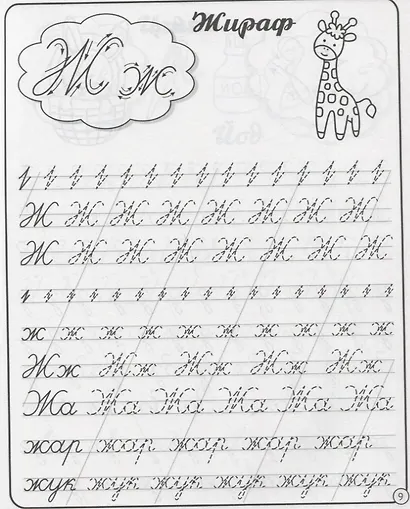 Жираф
Ж ж
Ж Ж Ж Ж Ж Ж Ж Ж Ж
Ж Ж Ж Ж Ж Ж Ж Ж Ж
ж ж ж ж ж ж ж ж ж ж
Жж Жж Жж Жж Жж
Жа Жа Жа Жа Жа Жа
жар жар жар жар жар
жук жук жук жук жук жук
9